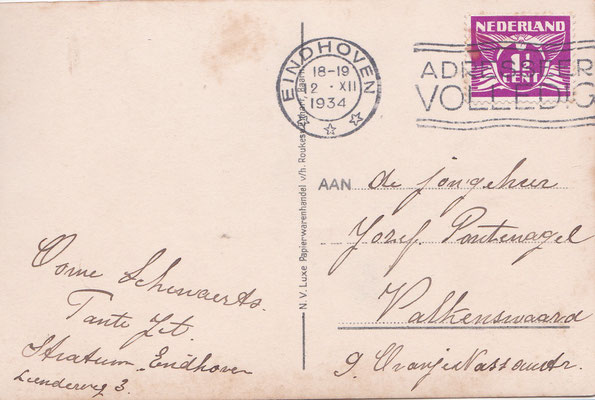 NEDERLAND
1½
CENT
EINDHOVEN
18-19
2 · XII
1934
ADRESSEER
VOLLEDIG
N.V. Luxe Papierwarenhandel v/h. Roukes & Erhart, Baarn
AAN
de jongeheer
Jozef Pontenagel
Valkenswaard
9. OranjeNassaustr.
Oome Schewaerts.
Tante Jet.
Stratum - Eindhoven
Leenderweg 3.